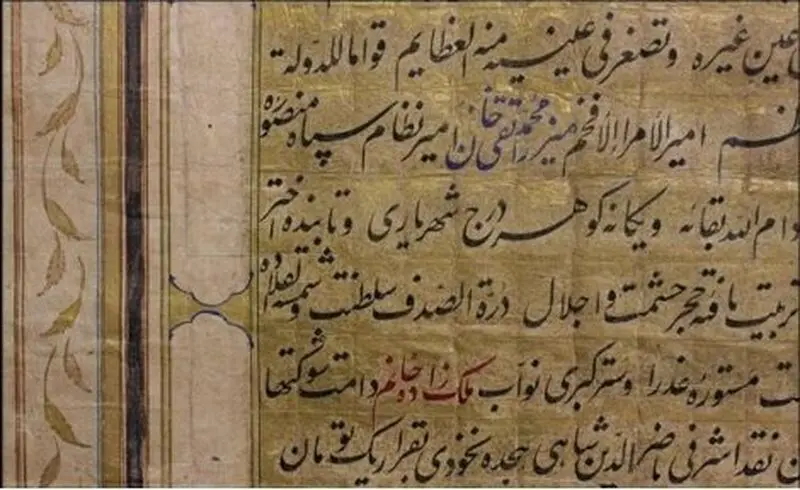 عین غیره و تصغر فی عینیه منه العظایم قواماً للدولة
امیر الأمراء الأفخم میرزا محمد تقی خان امیر نظام سپاه منصوره
دام الله بقائه و یکانه کوهر درج شهریاری و تابنده اختر
تربیت یافته حجر حشمت و اجلال درة الصدف سلطنت و شمسه
مستوره عذرا و ستر کبری نواب ملک زاده خانم دامت شوکتها
نقد اشرفی ناصرالدین شاهی هجده نخودی بقرار یک تومان